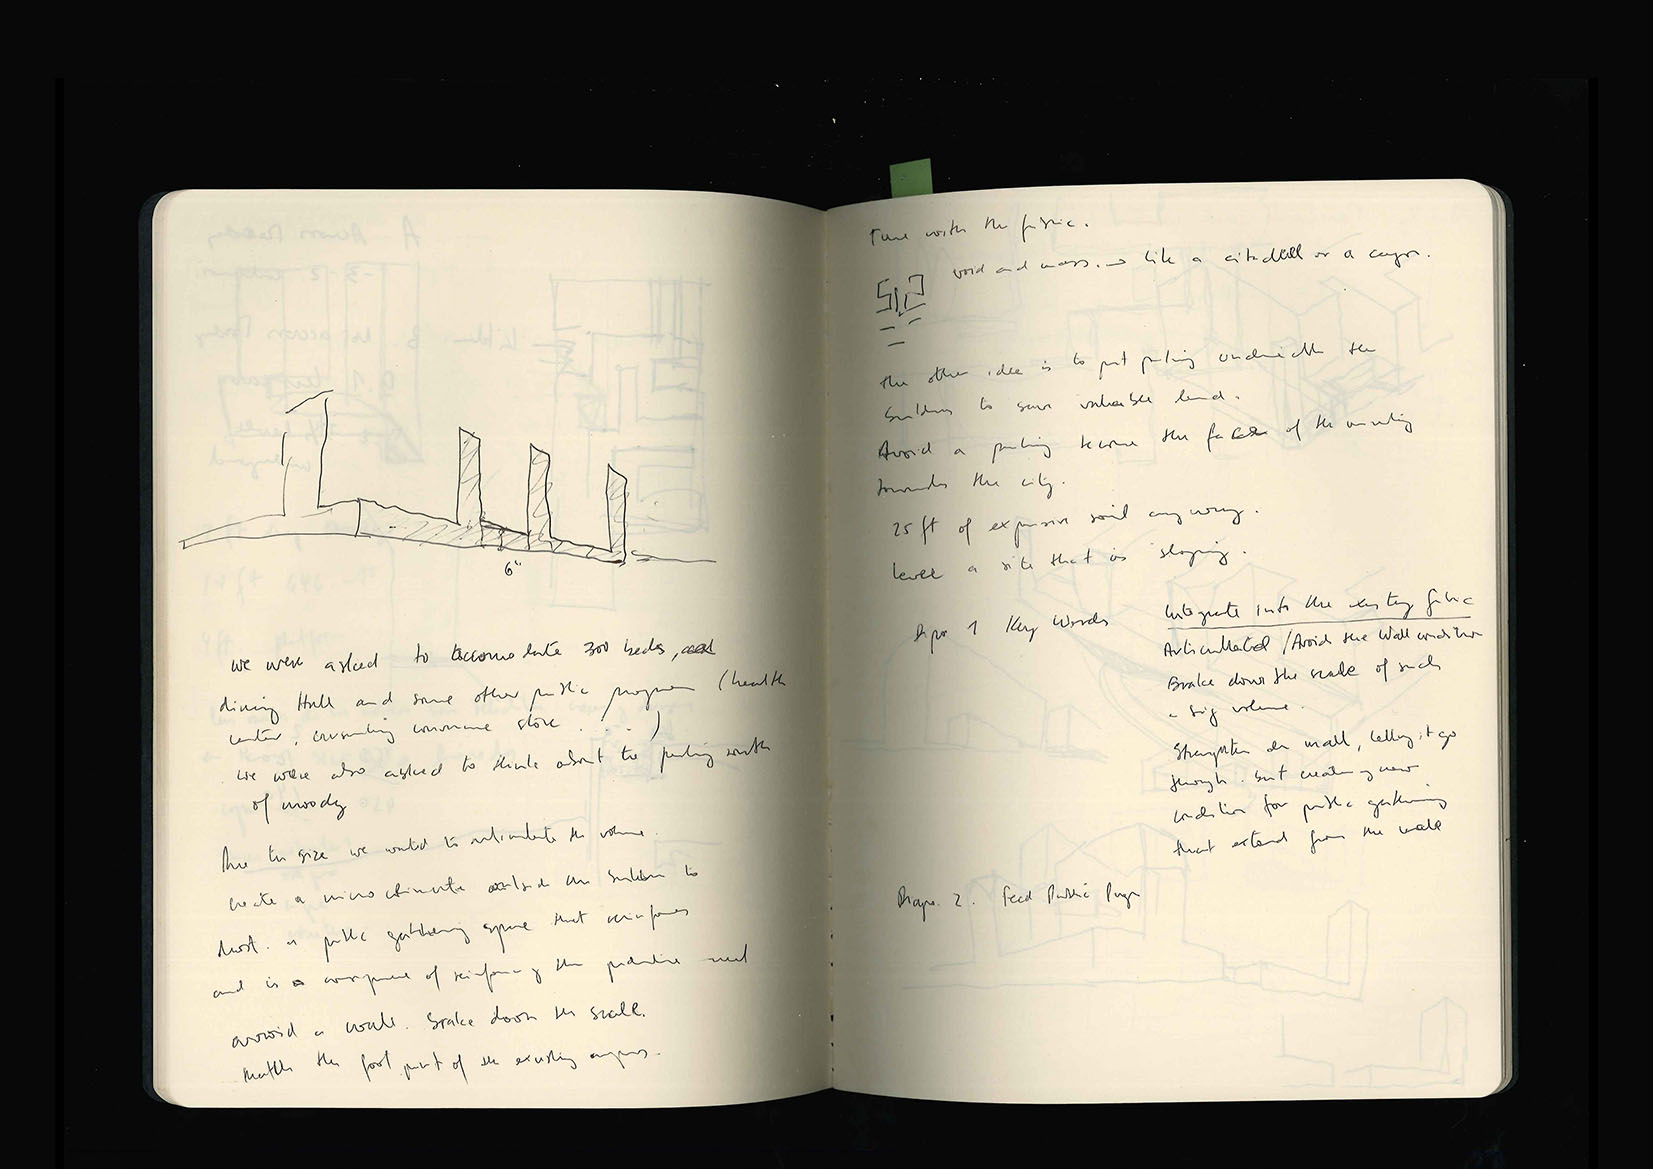 6"
we were asked to accomodate 300 beds,
dining Hall and some other public program (health
center, convenience store ....)
we were also asked to think about the parking south
of moody
the size we wanted to articulate the volume.
create a micro climate our
a public gathering space that reinforces
and is a consequence of reinforcing the
avoid a wall. Brake down the scale.
match the foot print of the existing campus.
Tune with the fabric.
void and mass. → like a citadell or a canyon.
the other idea is to put parking underneath the
building to save valuable land.
Avoid a parking become the facade of the
towards the city.
25 ft of expansive soil anyway.
level a site that is sloping.
Diagr 1 Key Words
Integrate into the existing fabric
Articullated / Avoid the Wall condition
Brake down the scale of such
a big volume.
Straighten the mall, letting it go
through. but creating new
condition for public gathering
that extend from the walk
Diagr. 2. Feed Public Progr